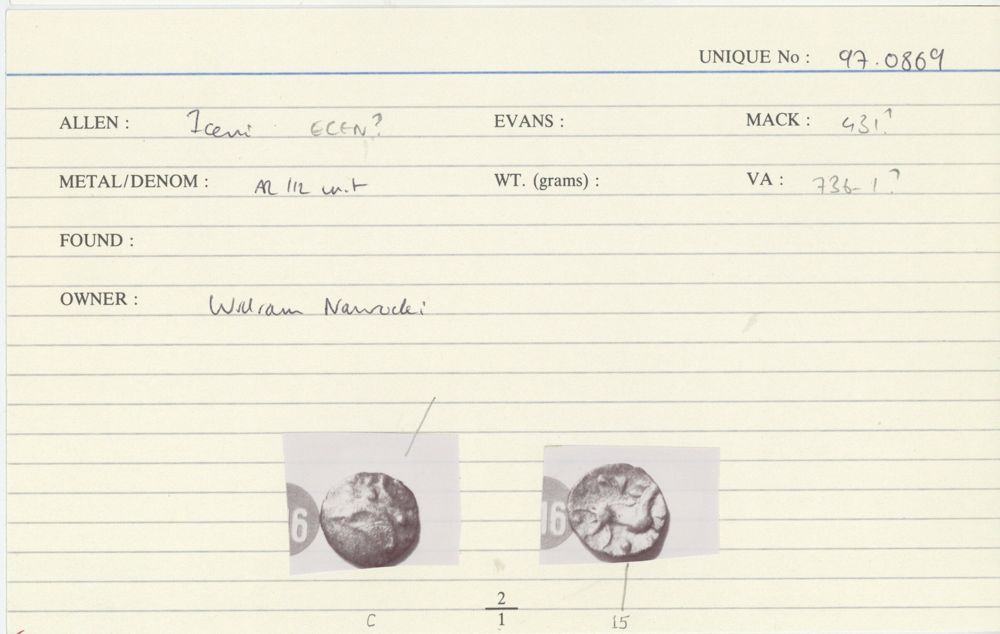 UNIQUE No : 97.0869
ALLEN : Iceni ECEN? EVANS : MACK : 431?
METAL/DENOM : AR 1/2 unit WT. (grams) : VA : 736-1?
FOUND :
OWNER : William Nawrocki
6 16
2
C 1 15